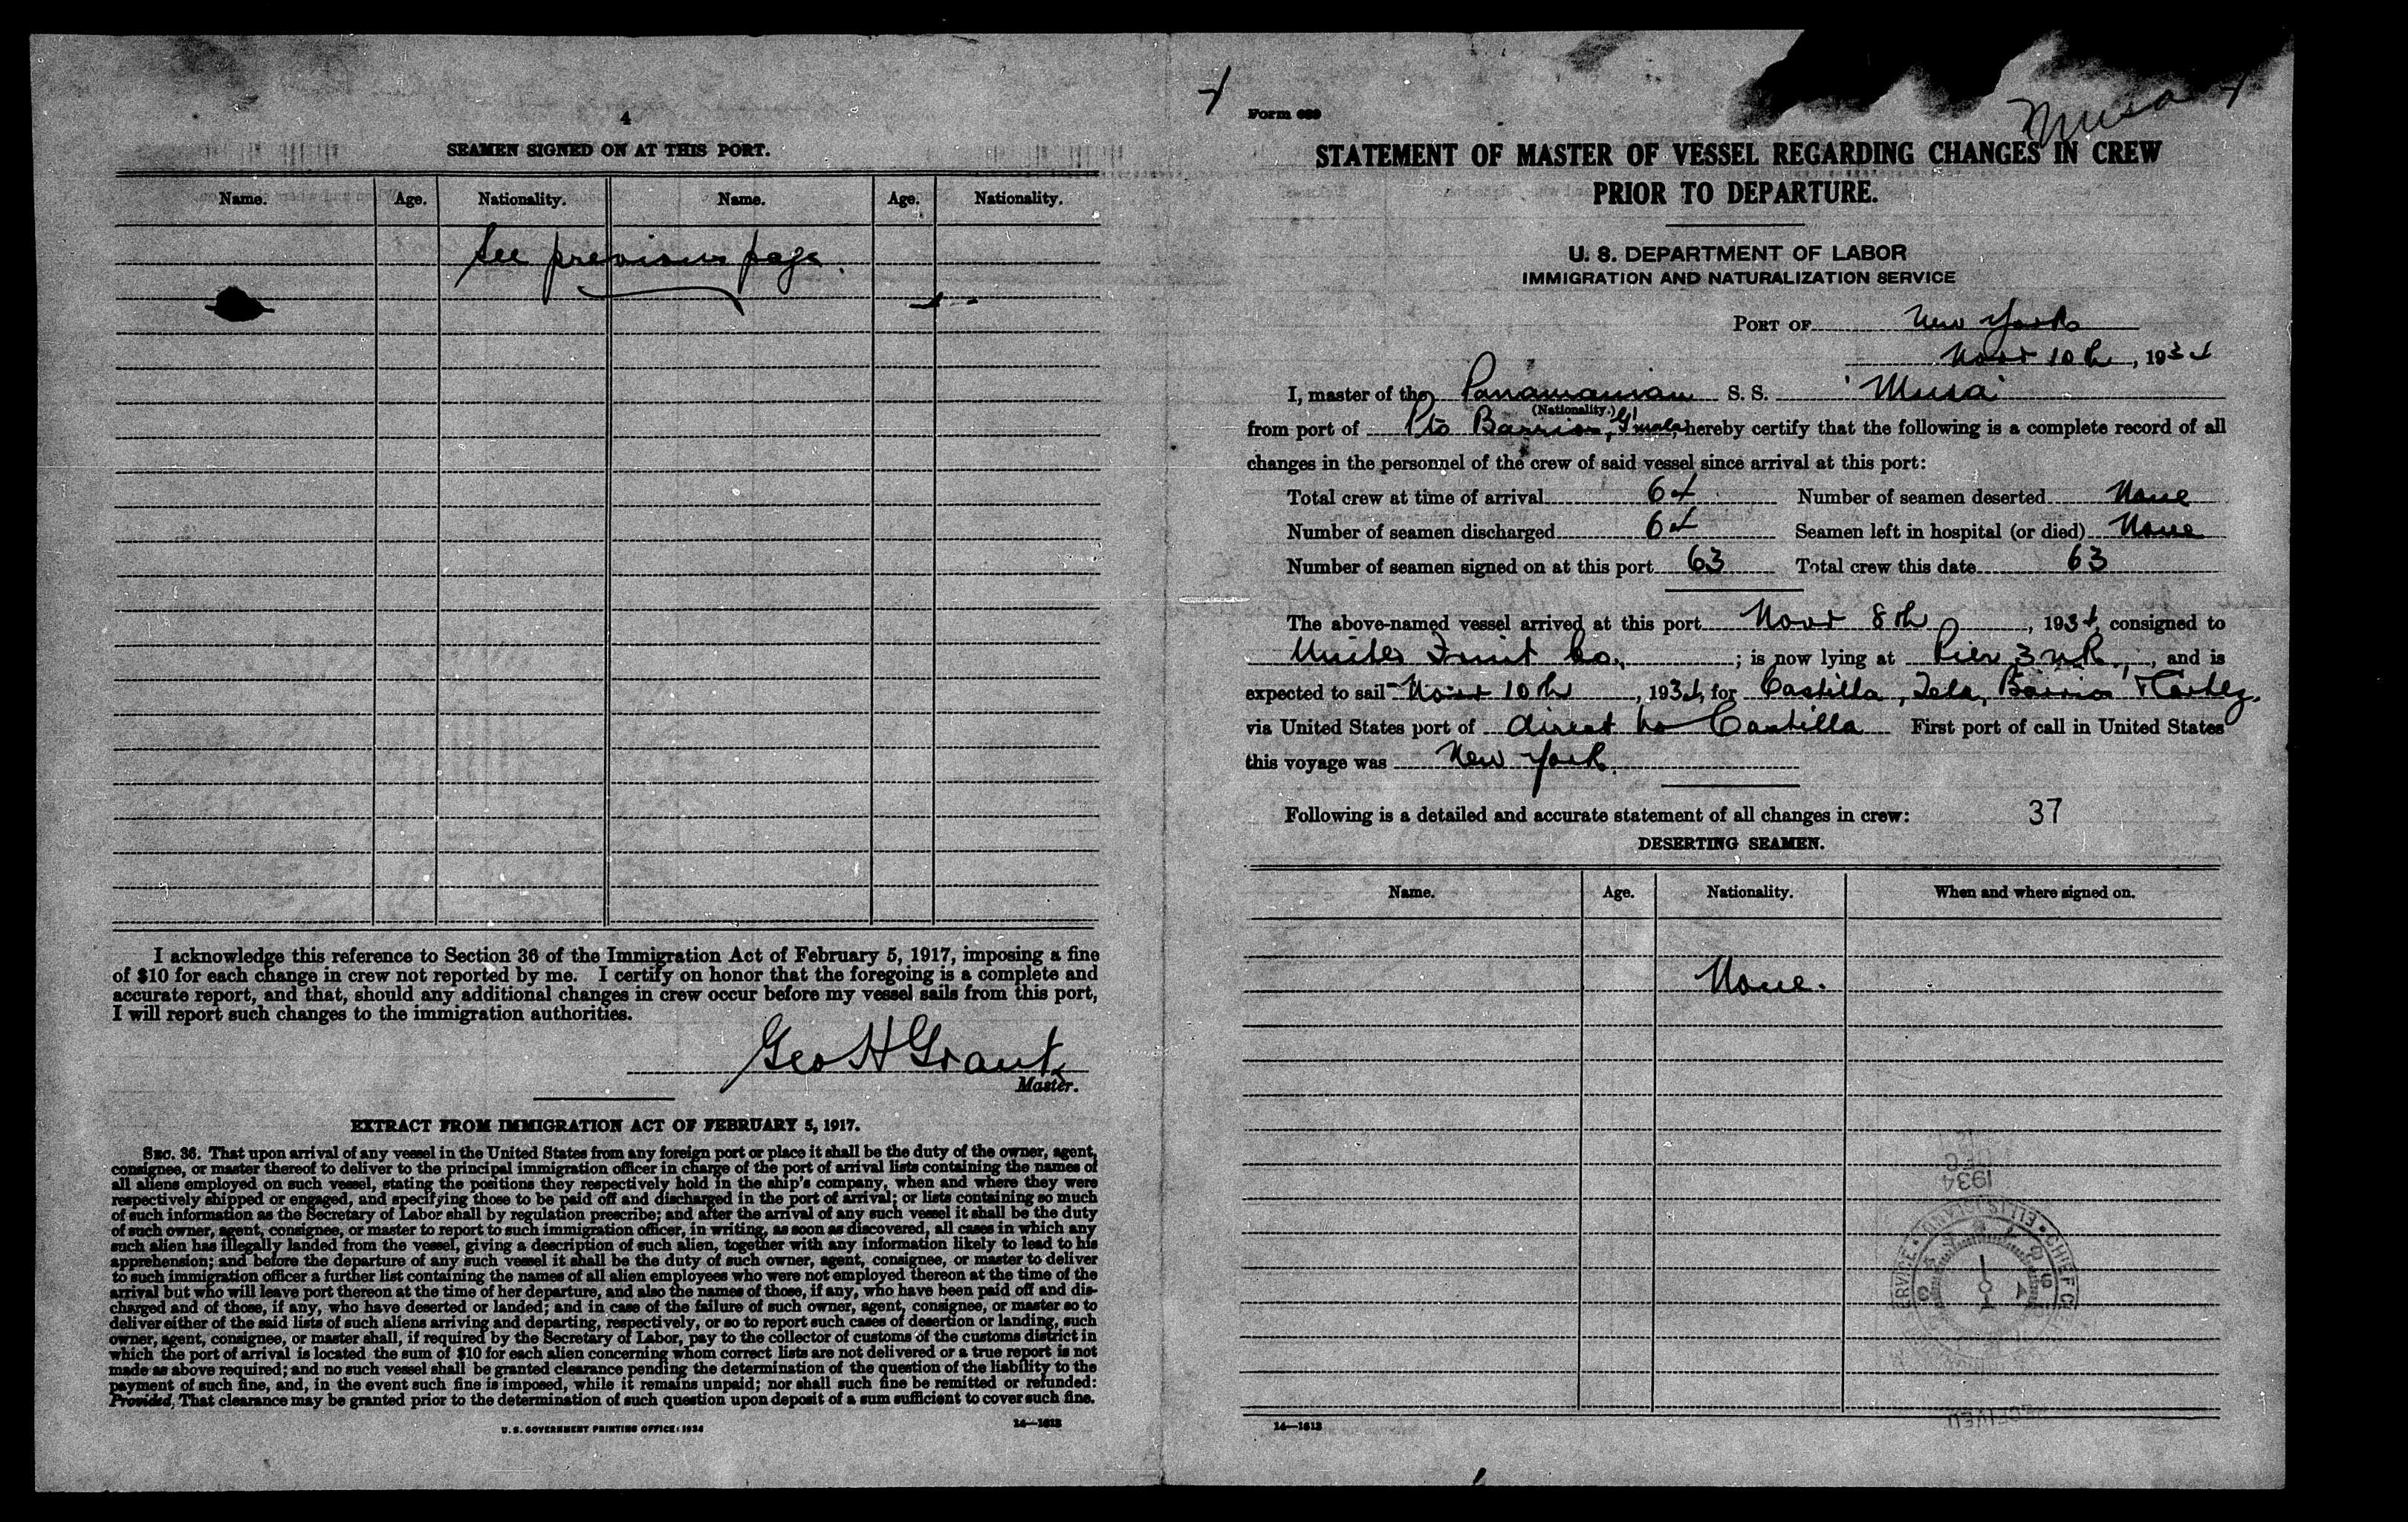 4
SEAMEN SIGNED ON AT THIS PORT.
Name. Age. Nationality. Name. Age. Nationality.
See previous page.
I acknowledge this reference to Section 36 of the Immigration Act of February 5, 1917, imposing a fine
of $10 for each change in crew not reported by me. I certify on honor that the foregoing is a complete and
accurate report, and that, should any additional changes in crew occur before my vessel sails from this port,
I will report such changes to the immigration authorities.
Geo H Grant
Master.
EXTRACT FROM IMMIGRATION ACT OF FEBRUARY 5, 1917.
SEC. 36. That upon arrival of any vessel in the United States from any foreign port or place it shall be the duty of the owner, agent,
consignee, or master thereof to deliver to the principal immigration officer in charge of the port of arrival lists containing the names of
all aliens employed on such vessel, stating the positions they respectively hold in the ship's company, when and where they were
respectively shipped or engaged, and specifying those to be paid off and discharged in the port of arrival; or lists containing so much
of such information as the Secretary of Labor shall by regulation prescribe; and after the arrival of any such vessel it shall be the duty
of such owner, agent, consignee, or master to report to such immigration officer, in writing, as soon as discovered, all cases in which any
such alien has illegally landed from the vessel, giving a description of such alien, together with any information likely to lead to his
apprehension; and before the departure of any such vessel it shall be the duty of such owner, agent, consignee, or master to deliver
to such immigration officer a further list containing the names of all alien employees who were not employed thereon at the time of the
arrival but who will leave port thereon at the time of her departure, and also the names of those, if any, who have been paid off and dis-
charged and of those, if any, who have deserted or landed; and in case of the failure of such owner, agent, consignee, or master so to
deliver either of the said lists of such aliens arriving and departing, respectively, or so to report such cases of desertion or landing, such
owner, agent, consignee, or master shall, if required by the Secretary of Labor, pay to the collector of customs of the customs district in
which the port of arrival is located the sum of $10 for each alien concerning whom correct lists are not delivered or a true report is not
made as above required; and no such vessel shall be granted clearance pending the determination of the question of the liability to the
payment of such fine, and, in the event such fine is imposed, while it remains unpaid; nor shall such fine be remitted or refunded:
Provided, That clearance may be granted prior to the determination of such question upon deposit of a sum sufficient to cover such fine.
U.S. GOVERNMENT PRINTING OFFICE: 1934
14—1613
Form 689
Musa
STATEMENT OF MASTER OF VESSEL REGARDING CHANGES IN CREW
PRIOR TO DEPARTURE.
U. S. DEPARTMENT OF LABOR
IMMIGRATION AND NATURALIZATION SERVICE
PORT OF New York
Novr 10th, 1934
I, master of the Panamanian S. S. "Musa"
(Nationality.)
from port of Pto Barrios, G'mala, hereby certify that the following is a complete record of all
changes in the personnel of the crew of said vessel since arrival at this port:
Total crew at time of arrival 64 Number of seamen deserted None
Number of seamen discharged 64 Seamen left in hospital (or died) None
Number of seamen signed on at this port 63 Total crew this date 63
The above-named vessel arrived at this port Novr 8th, 1934, consigned to
United Fruit Co.; is now lying at Pier 3 N.R., and is
expected to sail Novr 10th, 1934, for Castilla, Tela, Barrios &
via United States port of direct to Castilla First port of call in United States
this voyage was New York.
Following is a detailed and accurate statement of all changes in crew: 37
DESERTING SEAMEN.
Name. Age. Nationality. When and where signed on.
None.
DEC
1934
ELLIS ISLAND • CHIEF
14—1613